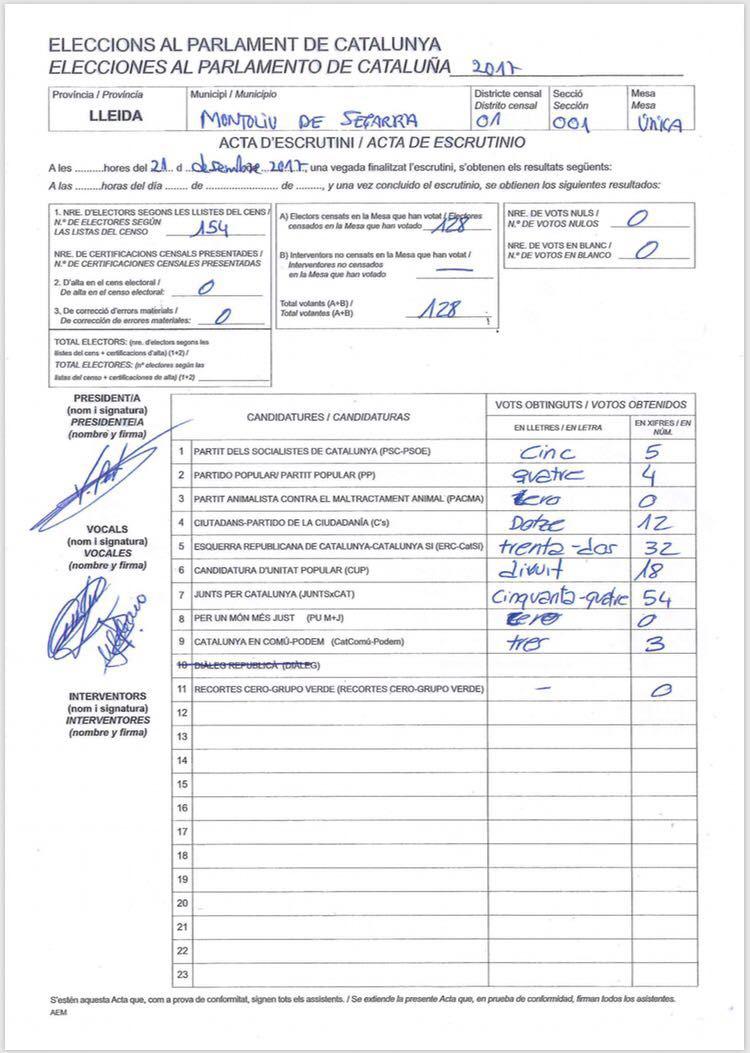 ELECCIONS AL PARLAMENT DE CATALUNYA
ELECCIONES AL PARLAMENTO DE CATALUÑA 2017
Província / Provincia
LLEIDA
Municipi / Municipio
MONTOLIU DE SEGARRA
Districte censal
Distrito censal
01
Secció
Sección
001
Mesa
Mesa
ÚNICA
ACTA D'ESCRUTINI / ACTA DE ESCRUTINIO
A les ..........hores del 21 d desembre 2017, una vegada finalitzat l'escrutini, s'obtenen els resultats següents:
A las .........horas del día ........ de .......................... de ........., y una vez concluido el escrutinio, se obtienen los siguientes resultados:
1. NRE. D'ELECTORS SEGONS LES LLISTES DEL CENS /
N.º DE ELECTORES SEGÚN
LAS LISTAS DEL CENSO 154
NRE. DE CERTIFICACIONS CENSALS PRESENTADES /
N.º DE CERTIFICACIONES CENSALES PRESENTADAS
2. D'alta en el cens electoral /
De alta en el censo electoral: 0
3. De correcció d'errors materials /
De corrección de errores materiales: 0
TOTAL ELECTORS: (nre. d'electors segons les
llistes del cens + certificacions d'alta) (1+2) /
TOTAL ELECTORES: (nº electores según las
listas del censo + certificaciones de alta) (1+2)
A) Electors censats en la Mesa que han votat / Electores
censados en la Mesa que han votado 128
B) Interventors no censats en la Mesa que han votat /
Interventores no censados
en la Mesa que han votado —
Total votants (A+B) /
Total votantes (A+B) 128
NRE. DE VOTS NULS /
N.º DE VOTOS NULOS 0
NRE. DE VOTS EN BLANC /
N.º DE VOTOS EN BLANCO 0
PRESIDENT/A
(nom i signatura)
PRESIDENTE/A
(nombre y firma)
VOCALS
(nom i signatura)
VOCALES
(nombre y firma)
INTERVENTORS
(nom i signatura)
INTERVENTORES
(nombre y firma)
CANDIDATURES / CANDIDATURAS
VOTS OBTINGUTS / VOTOS OBTENIDOS
EN LLETRES / EN LETRA
EN XIFRES / EN
NÚM.
1 PARTIT DELS SOCIALISTES DE CATALUNYA (PSC-PSOE) cinc 5
2 PARTIDO POPULAR/ PARTIT POPULAR (PP) quatre 4
3 PARTIT ANIMALISTA CONTRA EL MALTRACTAMENT ANIMAL (PACMA) zero 0
4 CIUTADANS-PARTIDO DE LA CIUDADANÍA (C's) Dotze 12
5 ESQUERRA REPUBLICANA DE CATALUNYA-CATALUNYA SI (ERC-CatSI) trenta-dos 32
6 CANDIDATURA D'UNITAT POPULAR (CUP) divuit 18
7 JUNTS PER CATALUNYA (JUNTSxCAT) Cinquanta-quatre 54
8 PER UN MÓN MÉS JUST (PU M+J) zero 0
9 CATALUNYA EN COMÚ-PODEM (CatComú-Podem) tres 3
10 DIÀLEG REPUBLICÀ (DIÀLEG)
11 RECORTES CERO-GRUPO VERDE (RECORTES CERO-GRUPO VERDE) — 0
12
13
14
15
16
17
18
19
20
21
22
23
S'estén aquesta Acta que, com a prova de conformitat, signen tots els assistents. / Se extiende la presente Acta que, en prueba de conformidad, firman todos los asistentes.
AEM